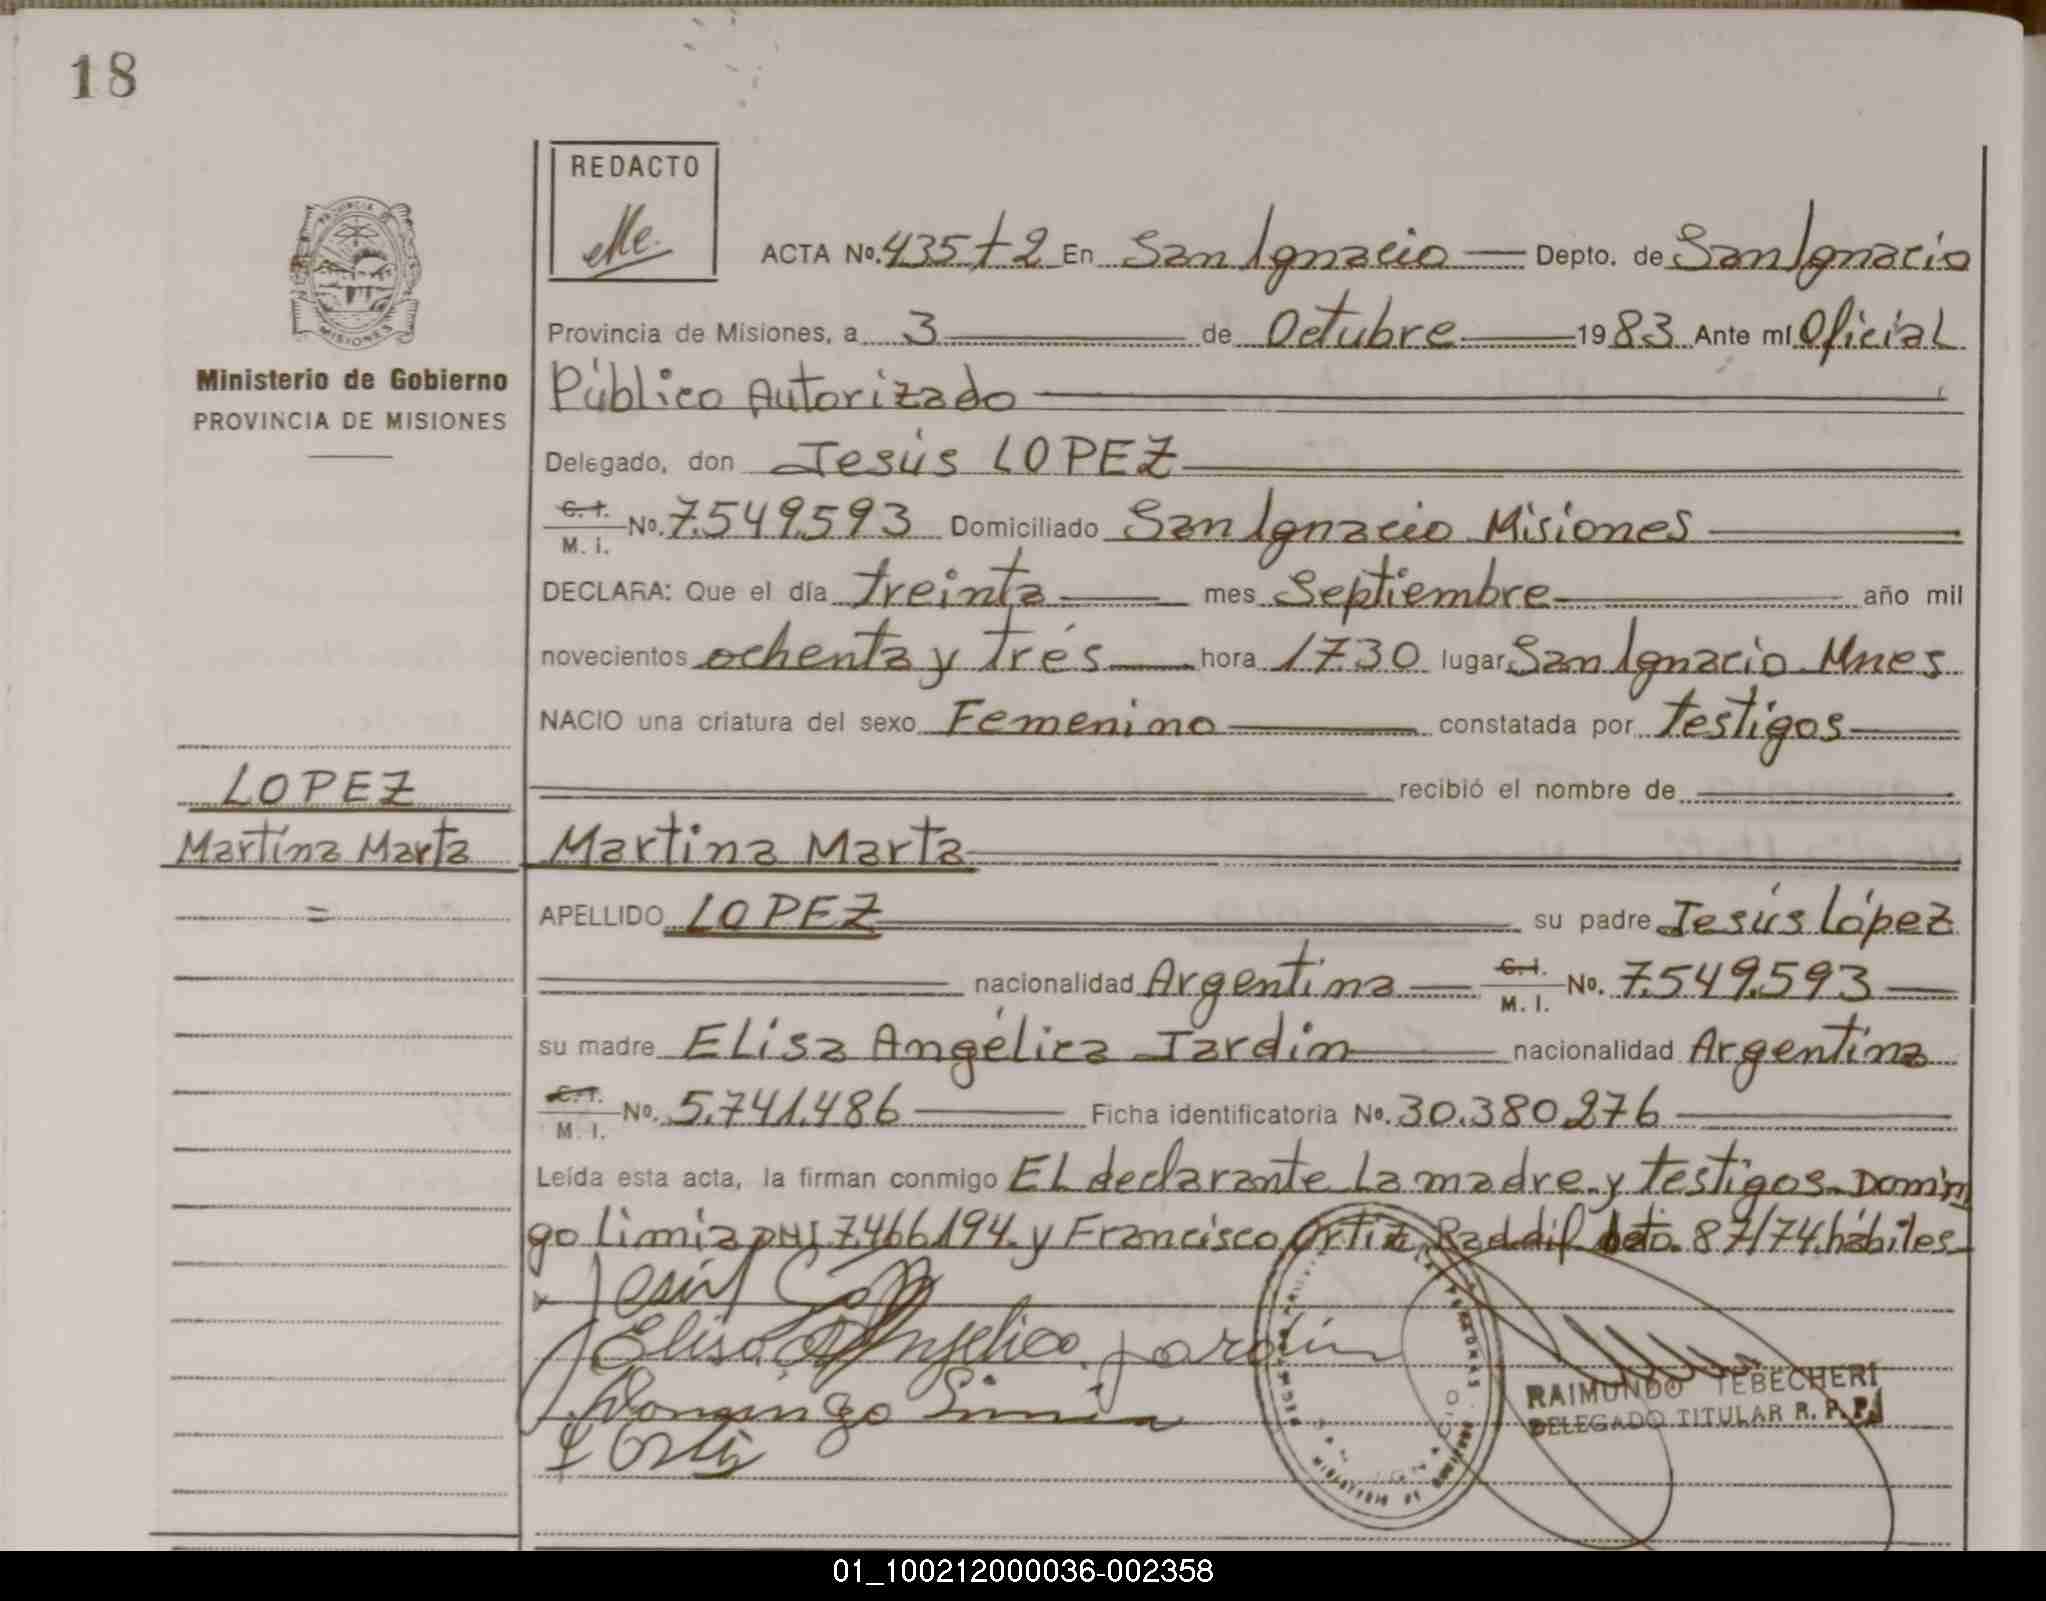 18
REDACTO
ACTA No. 435 t 2 En San Ignacio Depto. de San Ignacio
PROVINCIA DE
MISIONES
Provincia de Misiones, a 3 de Octubre 1983 Ante mí Oficial
Ministerio de Gobierno
PROVINCIA DE MISIONES
Público Autorizado
Delegado, don Jesús LOPEZ
C. I. M. I. No. 7.549.593 Domiciliado San Ignacio Misiones
DECLARA: Que el día treinta mes Septiembre año mil
novecientos ochenta y trés hora 1730 lugar San Ignacio Mnes
NACIO una criatura del sexo Femenino constatada por testigos
recibió el nombre de
LOPEZ
Martina Marta
Martina Marta
=
APELLIDO LOPEZ su padre Jesús López
nacionalidad Argentina C. I. M. I. No. 7.549.593
su madre Elisa Angélica Jardin nacionalidad Argentina
C. I. M. I. No. 5.741.486 Ficha identificatoria No. 30.380.276
Leída esta acta, la firman conmigo El declarante la madre y testigos Domin
go Limia DNI 7.466.194. y Francisco Ortiz, 87/74. hábiles
Elisa Angelica Jardin
Domingo Limia
F Ortiz
RAIMUNDO TEBECHERI
DELEGADO TITULAR R. P. P.
01_100212000036-002358